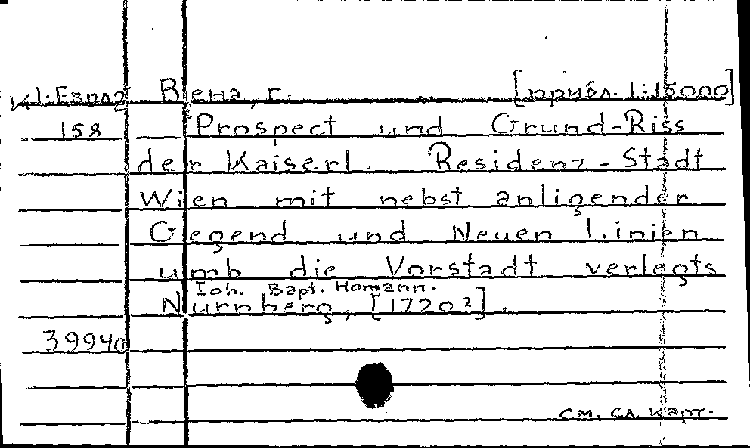 К1:Евр02 Вена, г. [прибл. 1:15000]
158 Prospect und Grund-Riss
der Kaiserl. Residenz-Stadt
Wien mit nebst anligender
Gegend und Neuen Linien
umb die Vorstadt verlegts
Ioh. Bapt. Homann.
Nürnberg, [1720?].
39940
см. сл. карт.